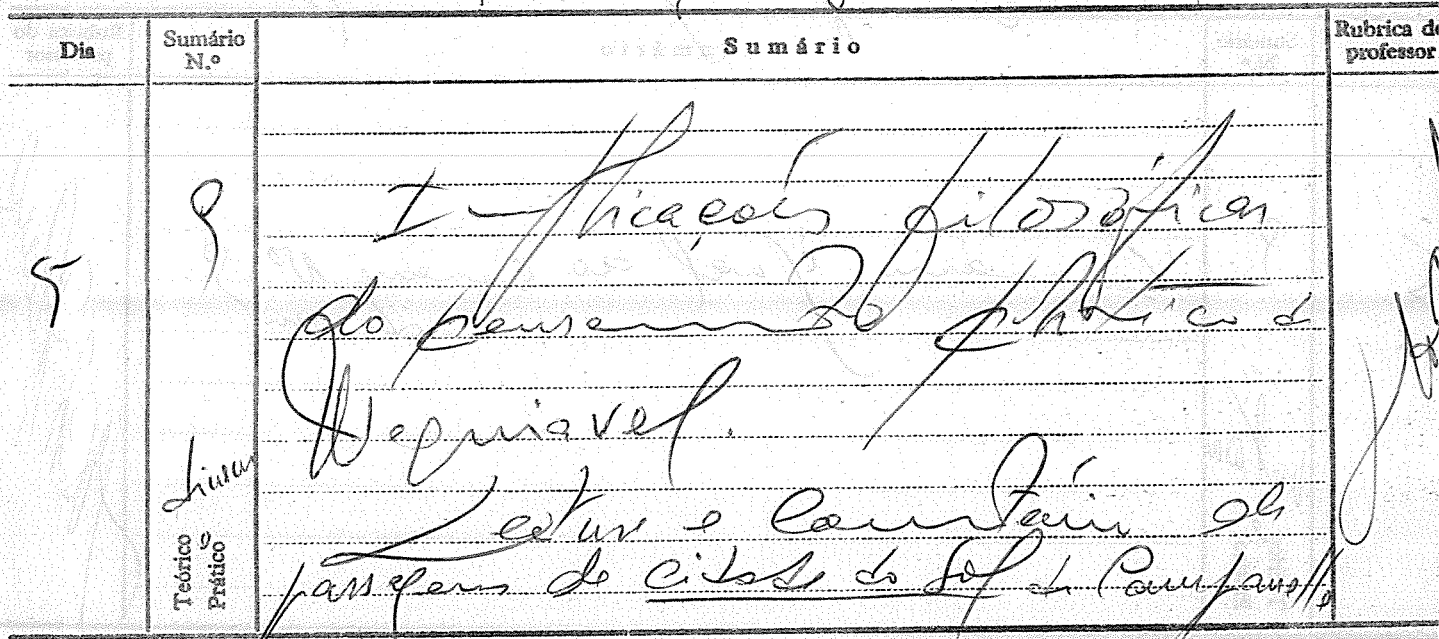 Dia
Sumário N.º
Sumário
Rubrica do professor
5
9
Implicações filosóficas
do pensamento político de
Maquiavel.
Leitura e Comentário de
passagens da Cidade do Sol de Campanella
Teórico
Prático